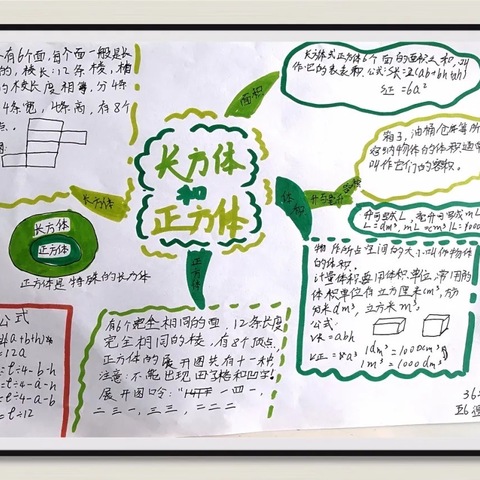 有6个面,每个面一般是长
的,棱长:12条棱,相
的棱长度相等,分4条
4条宽,4条高,有8个
点.
长方体或正方体6个面的面积之和,叫
作它的表面积.公式:S长=2(ab+bh+ah)
S正=6a²
面积
箱子,油桶,仓库等所
容纳物体的体积,通常
叫作它们的容积.
长方体
和
正方体
长方体
体积
容积
升与毫升
升可写成L,毫升可写成mL
1L=1dm³,1mL=1cm³,1L=1000
长方体
正方体
正方体是特殊的长方体
正方体
物体所占空间的大小叫作物体
的体积.
计量体积要用体积单位,常用的
体积单位有立方厘米cm³,立方
分米dm³,立方米m³.
公式:
V长=abh
V正=a³
1dm³=1000cm³
1m³=1000dm³
公式
4(a+b+h)
=12a
=ℓ÷4-b-h
=ℓ÷4-a-h
=ℓ÷4-a-b
=ℓ÷12
有6个完全相同的面,12条长度
完全相同的棱,有8个顶点.
正方体的展开图共有十一种,
注意:不能出现田字格和凹字!
展开图口诀:"一四一,
二三一,三三,二二二